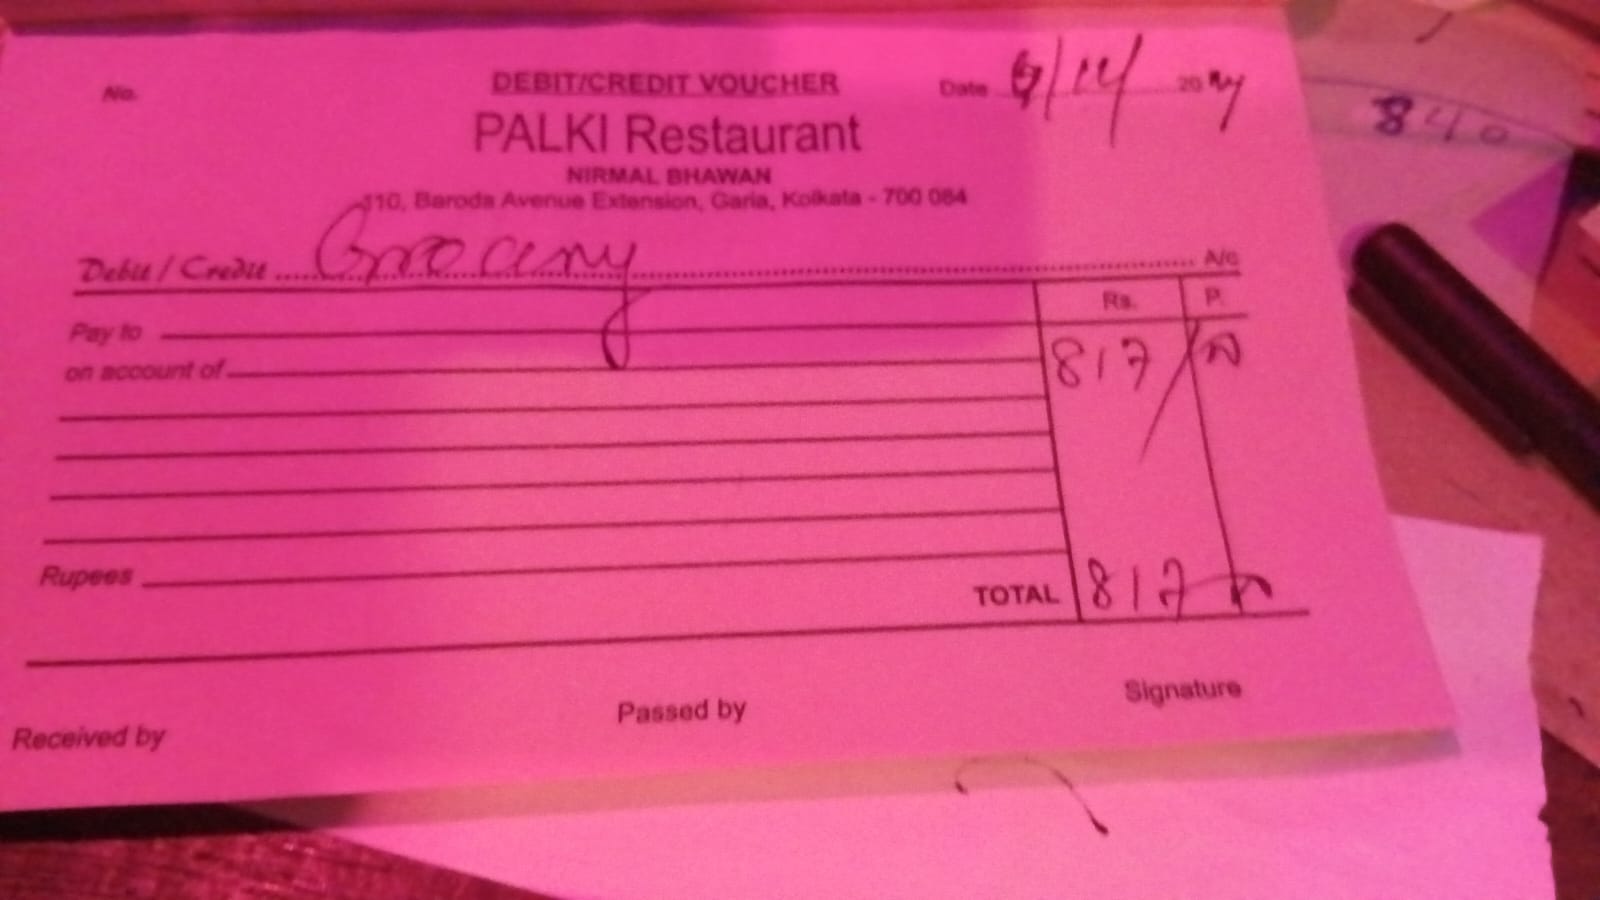 No.
DEBIT/CREDIT VOUCHER
Date 20
PALKI Restaurant
NIRMAL BHAWAN
310, Baroda Avenue Extension, Garia, Kolkata - 700 084
Debit / Credit Grocery A/c
Rs. P.
Pay to
on account of 817
Rupees
TOTAL 817
Received by
Passed by
Signature
840